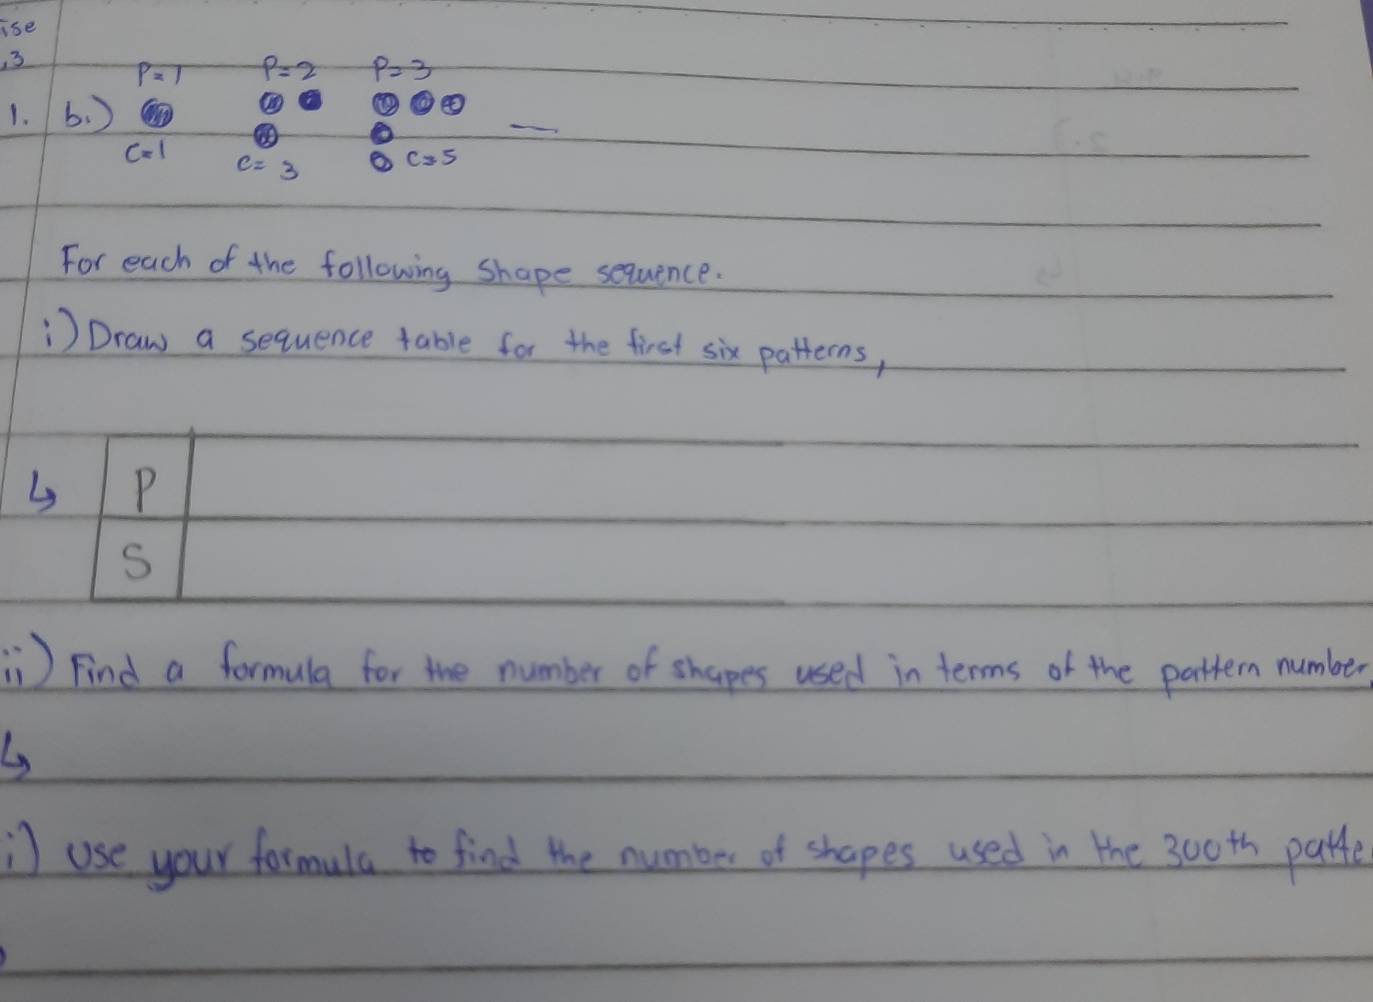 ise
.3
P=1 P=2 P=3
1. b.)
C=1 C=3 C=5
For each of the following shape sequence.
i) Draw a sequence table for the first six patterns,
↳ P
S
ii) Find a formula for the number of shapes used in terms of the pattern number,
↳
i) Use your formula to find the number of shapes used in the 300th patte